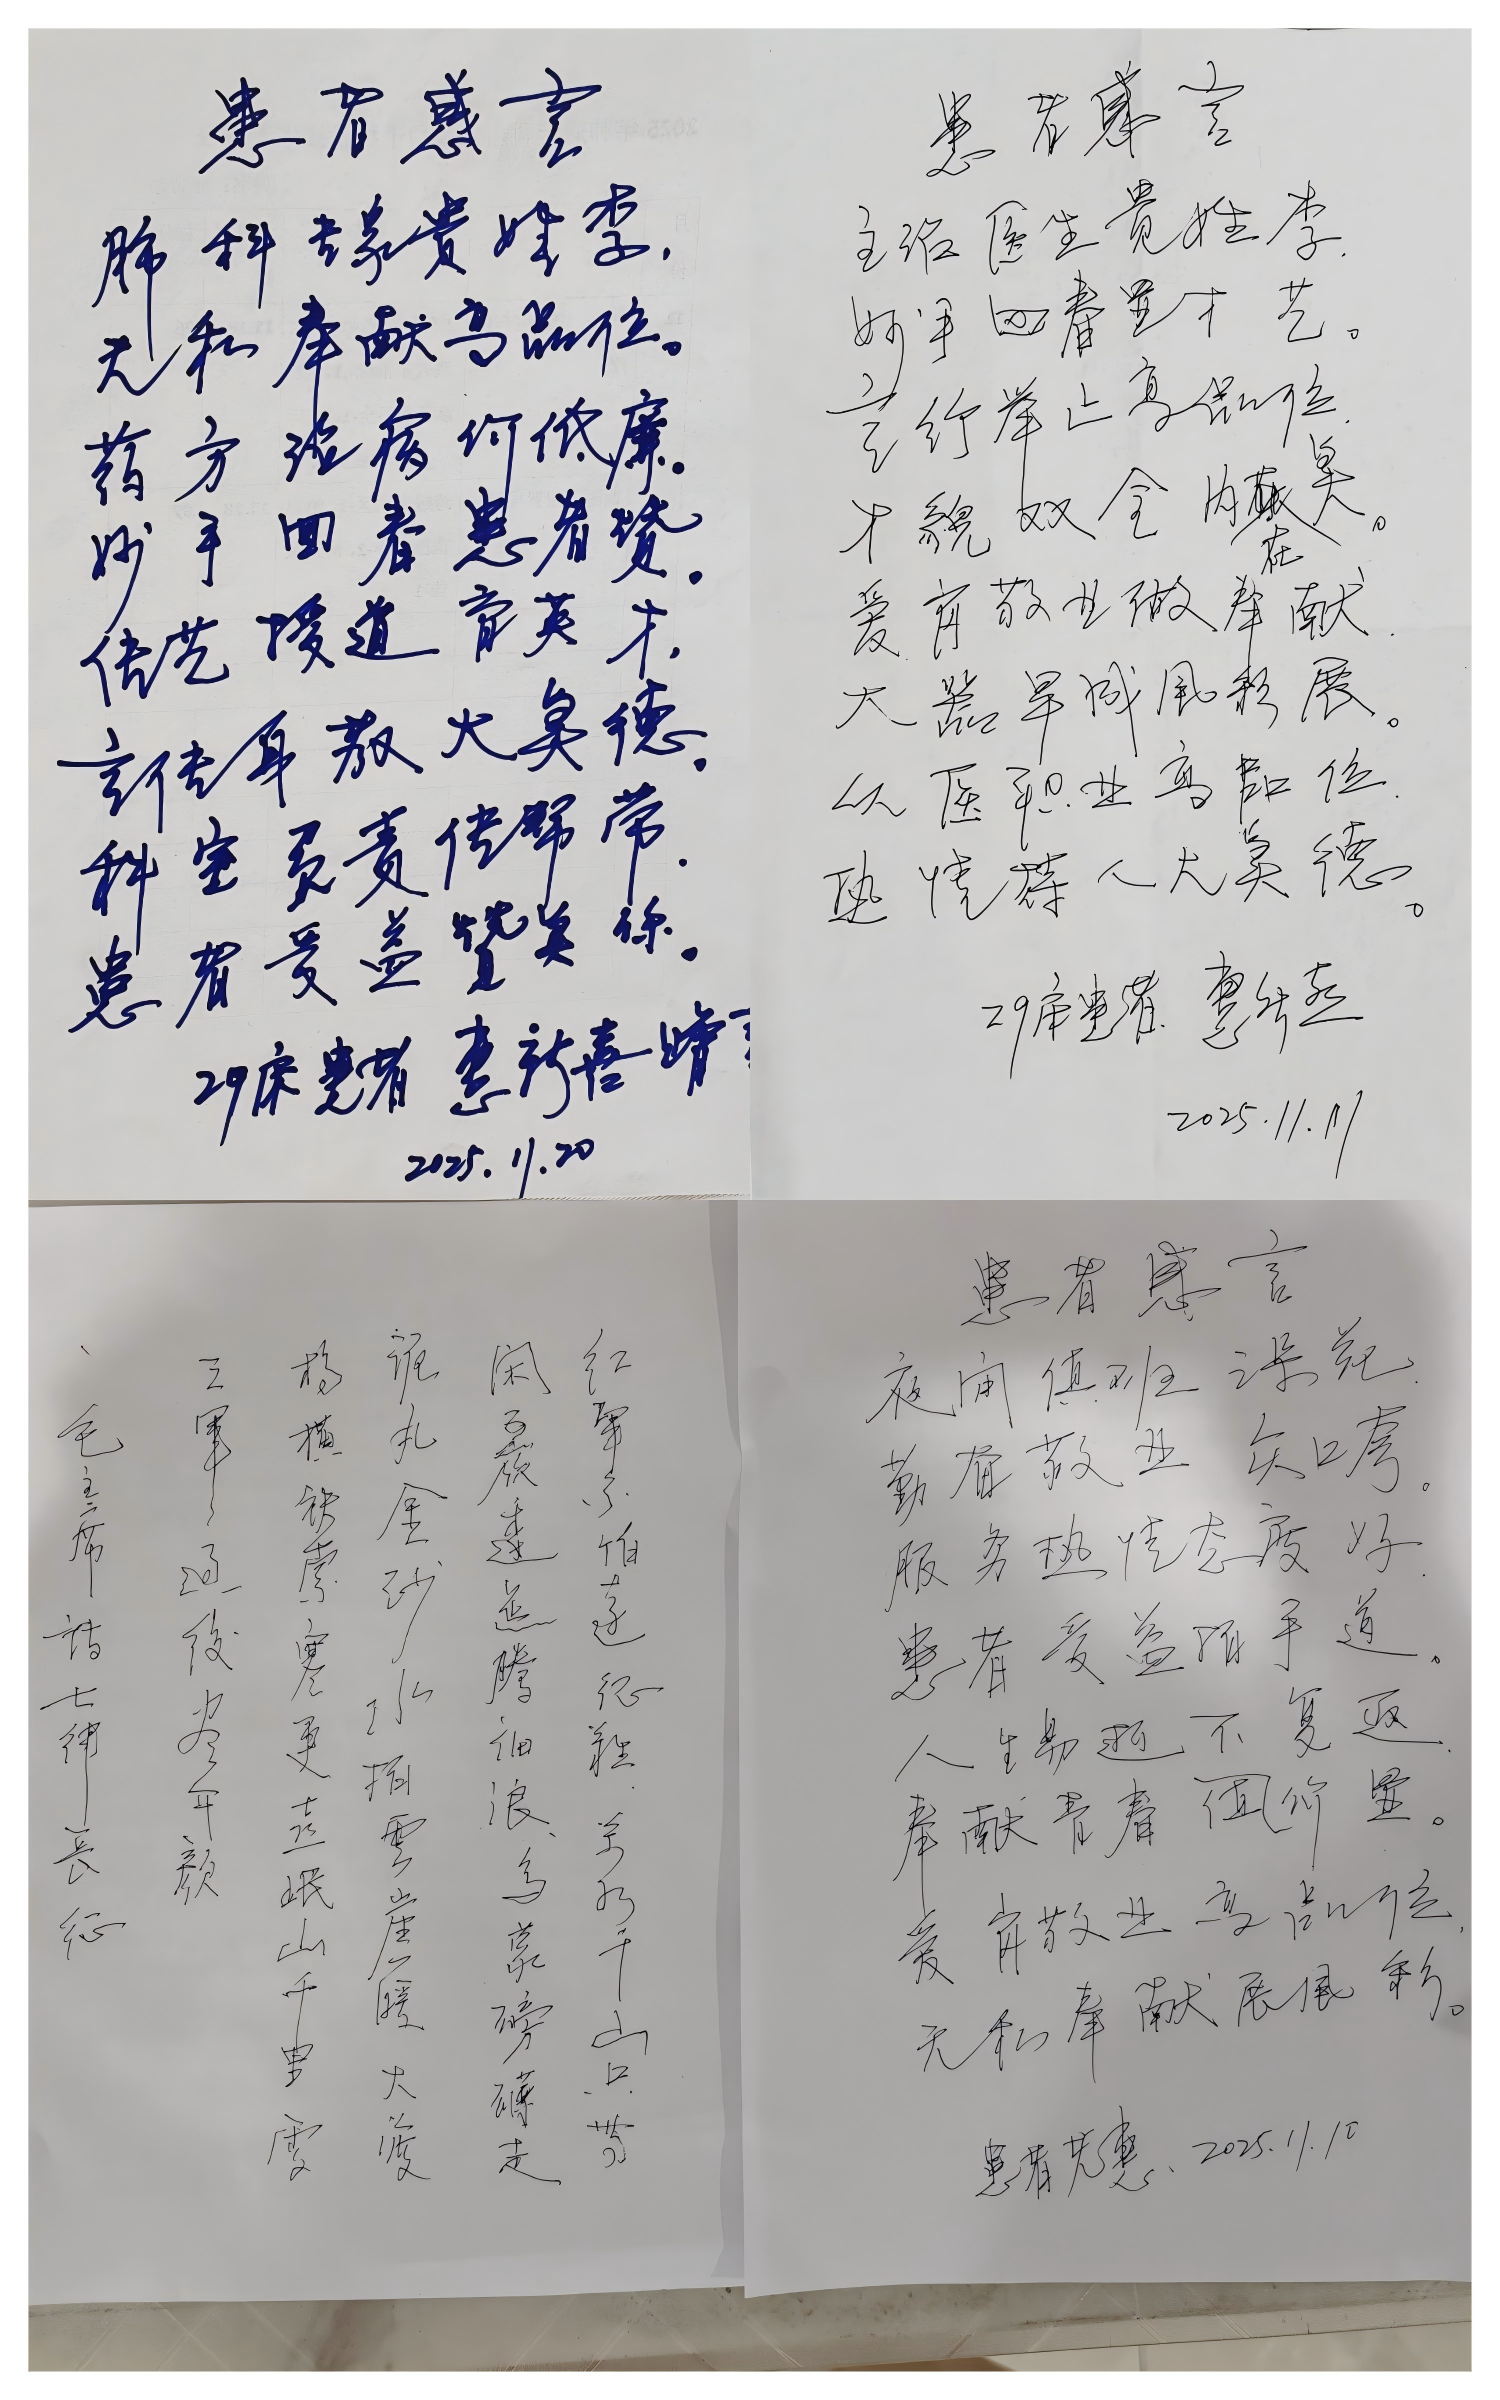 患者感言
肺科专家贵姓李,
无私奉献高品位。
药方治病价低廉。
妙手回春患者赞。
传艺授道育英才,
言传身教大美德。
科室负责传帮带.
患者受益赞美你。
29床患者 惠新喜
2025.11.20
患者感言
主治医生贵姓李.
妙手回春显才艺。
言行举止高品位.
才貌双全内在美。
爱育敬业做奉献.
大器早成风彩展。
从医职业高品位.
热情荐人大美德。
29床患者. 惠
2025.11.11
患者感言
夜间值班
勤育敬业众口夸。
服务热情态度好.
患者受益招手道。
人生易逝不复返.
奉献青春价值显。
爱育敬业高品位.
无私奉献展风彩。
患者老惠、2025.11.10
红军不怕远征难.万水千山只等
闲五岭逶迤腾细浪、乌蒙磅礴走
泥丸金砂水拍雲崖暖大渡
桥横铁索寒更喜岷山千里雪
三軍过後尽开颜
毛主席诗七律长征